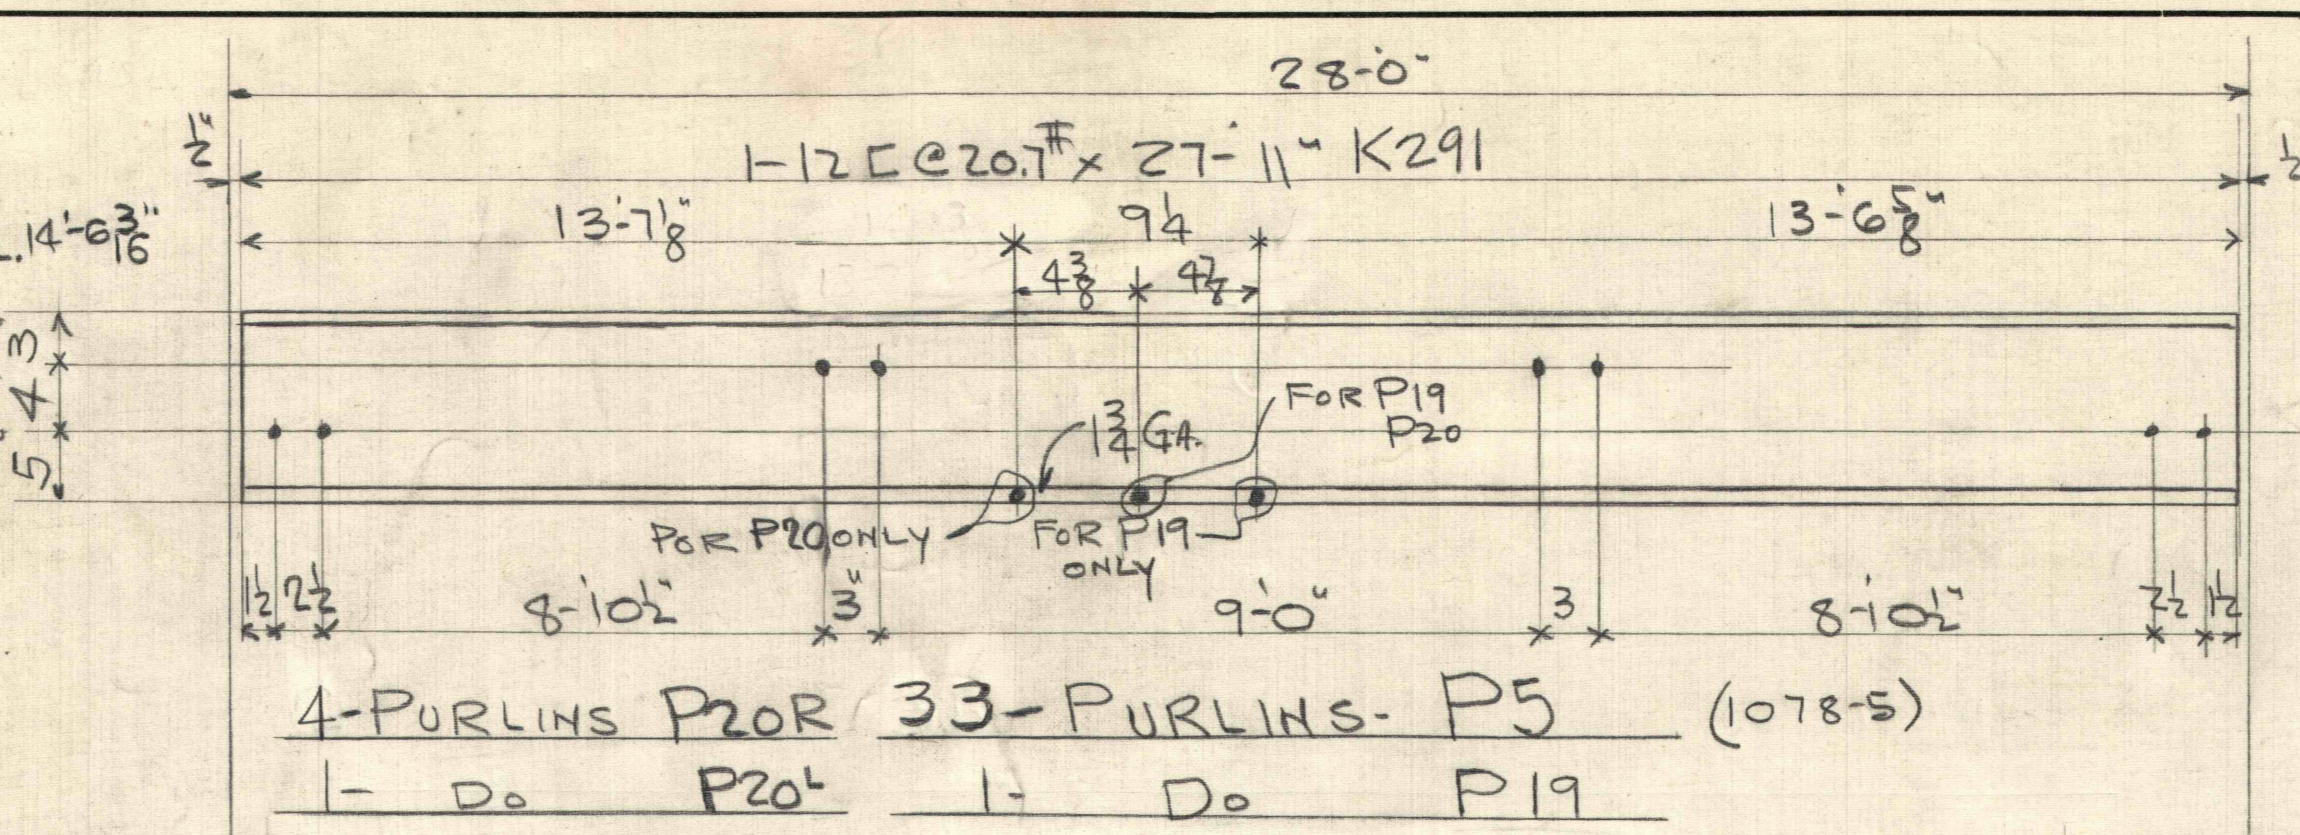 28'-0"
1/2"
1-12 [ @ 20.7# x 27'-11" K291
1/2
14'-6 3/16"
13'-7 1/8"
9 1/4
13'-6 5/8"
4 3/8
4 7/8
3
4
5
1 3/4 GA.
FOR P19
P20
POR P20 ONLY
FOR P19
ONLY
1 1/2
2 1/2
8'-10 1/2"
3"
9'-0"
3
8'-10 1/2"
2 1/2
1 1/2
4-PURLINS P20R 33-PURLINS- P5 (1078-5)
1- Do P20L 1- Do P19